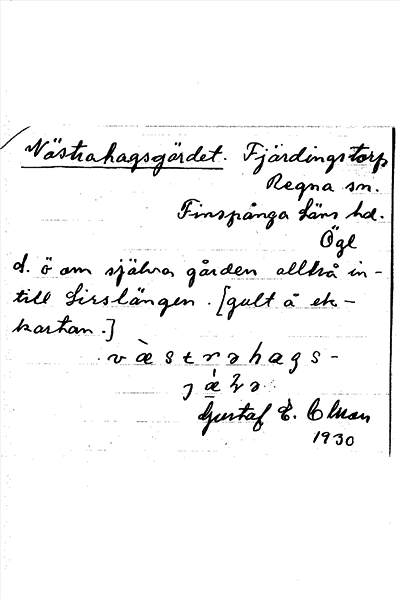 Västrahagsgärdet. Fjärdingstorp
Regna sn.
Finspånga läns hd.
Ögl
d. ö om själva gården alltså in-
till Lirslängen. [gult å ek-
kartan.]
Gustaf E. Olsson
1930